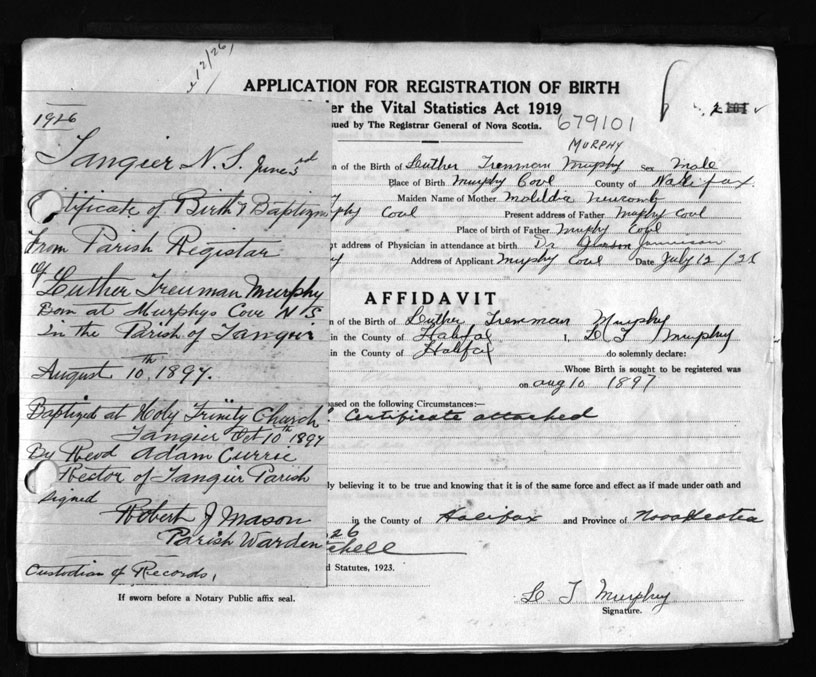 12/26,
APPLICATION FOR REGISTRATION OF BIRTH
der the Vital Statistics Act 1919
sued by The Registrar General of Nova Scotia.
679101
MURPHY
n of the Birth of Luther Trenman Murphy Sex Male
Place of Birth Murphy Cove County of Halifax.
Maiden Name of Mother Matildia Newcomb
phy Cove Present address of Father Murphy Cove
Place of birth of Father Murphy Cove
t address of Physician in attendance at birth Dr Jamieson
y Address of Applicant Murphy Cove Date July 12/26
AFFIDAVIT
n of the Birth of Luther Trenman Murphy
in the County of Halifax I, L T Murphy
in the County of Halifax do solemnly declare:
Whose Birth is sought to be registered was
on Aug 10 1897
ased on the following Circumstances:—
Certificate attached
ly believing it to be true and knowing that it is of the same force and effect as if made under oath and
in the County of Halifax and Province of Nova Scotia
26
chell
d Statutes, 1923.
If sworn before a Notary Public affix seal.
L T Murphy
Signature.
1926
Tangier N. S. June 3rd
Certificate of Birth & Baptizm
From Parish Registar
of
Luther Treuman Murphy
Born at Murphys Cove N S
In the Parish of Tangier
August 10th 1897.
Baptized at Holy Trinity Church
Tangier Oct 10th 1897
By Revd Adam Currie
Rector of Tangier Parish
Signed
Robert J Mason
Parish Warden
Custodian of Records,